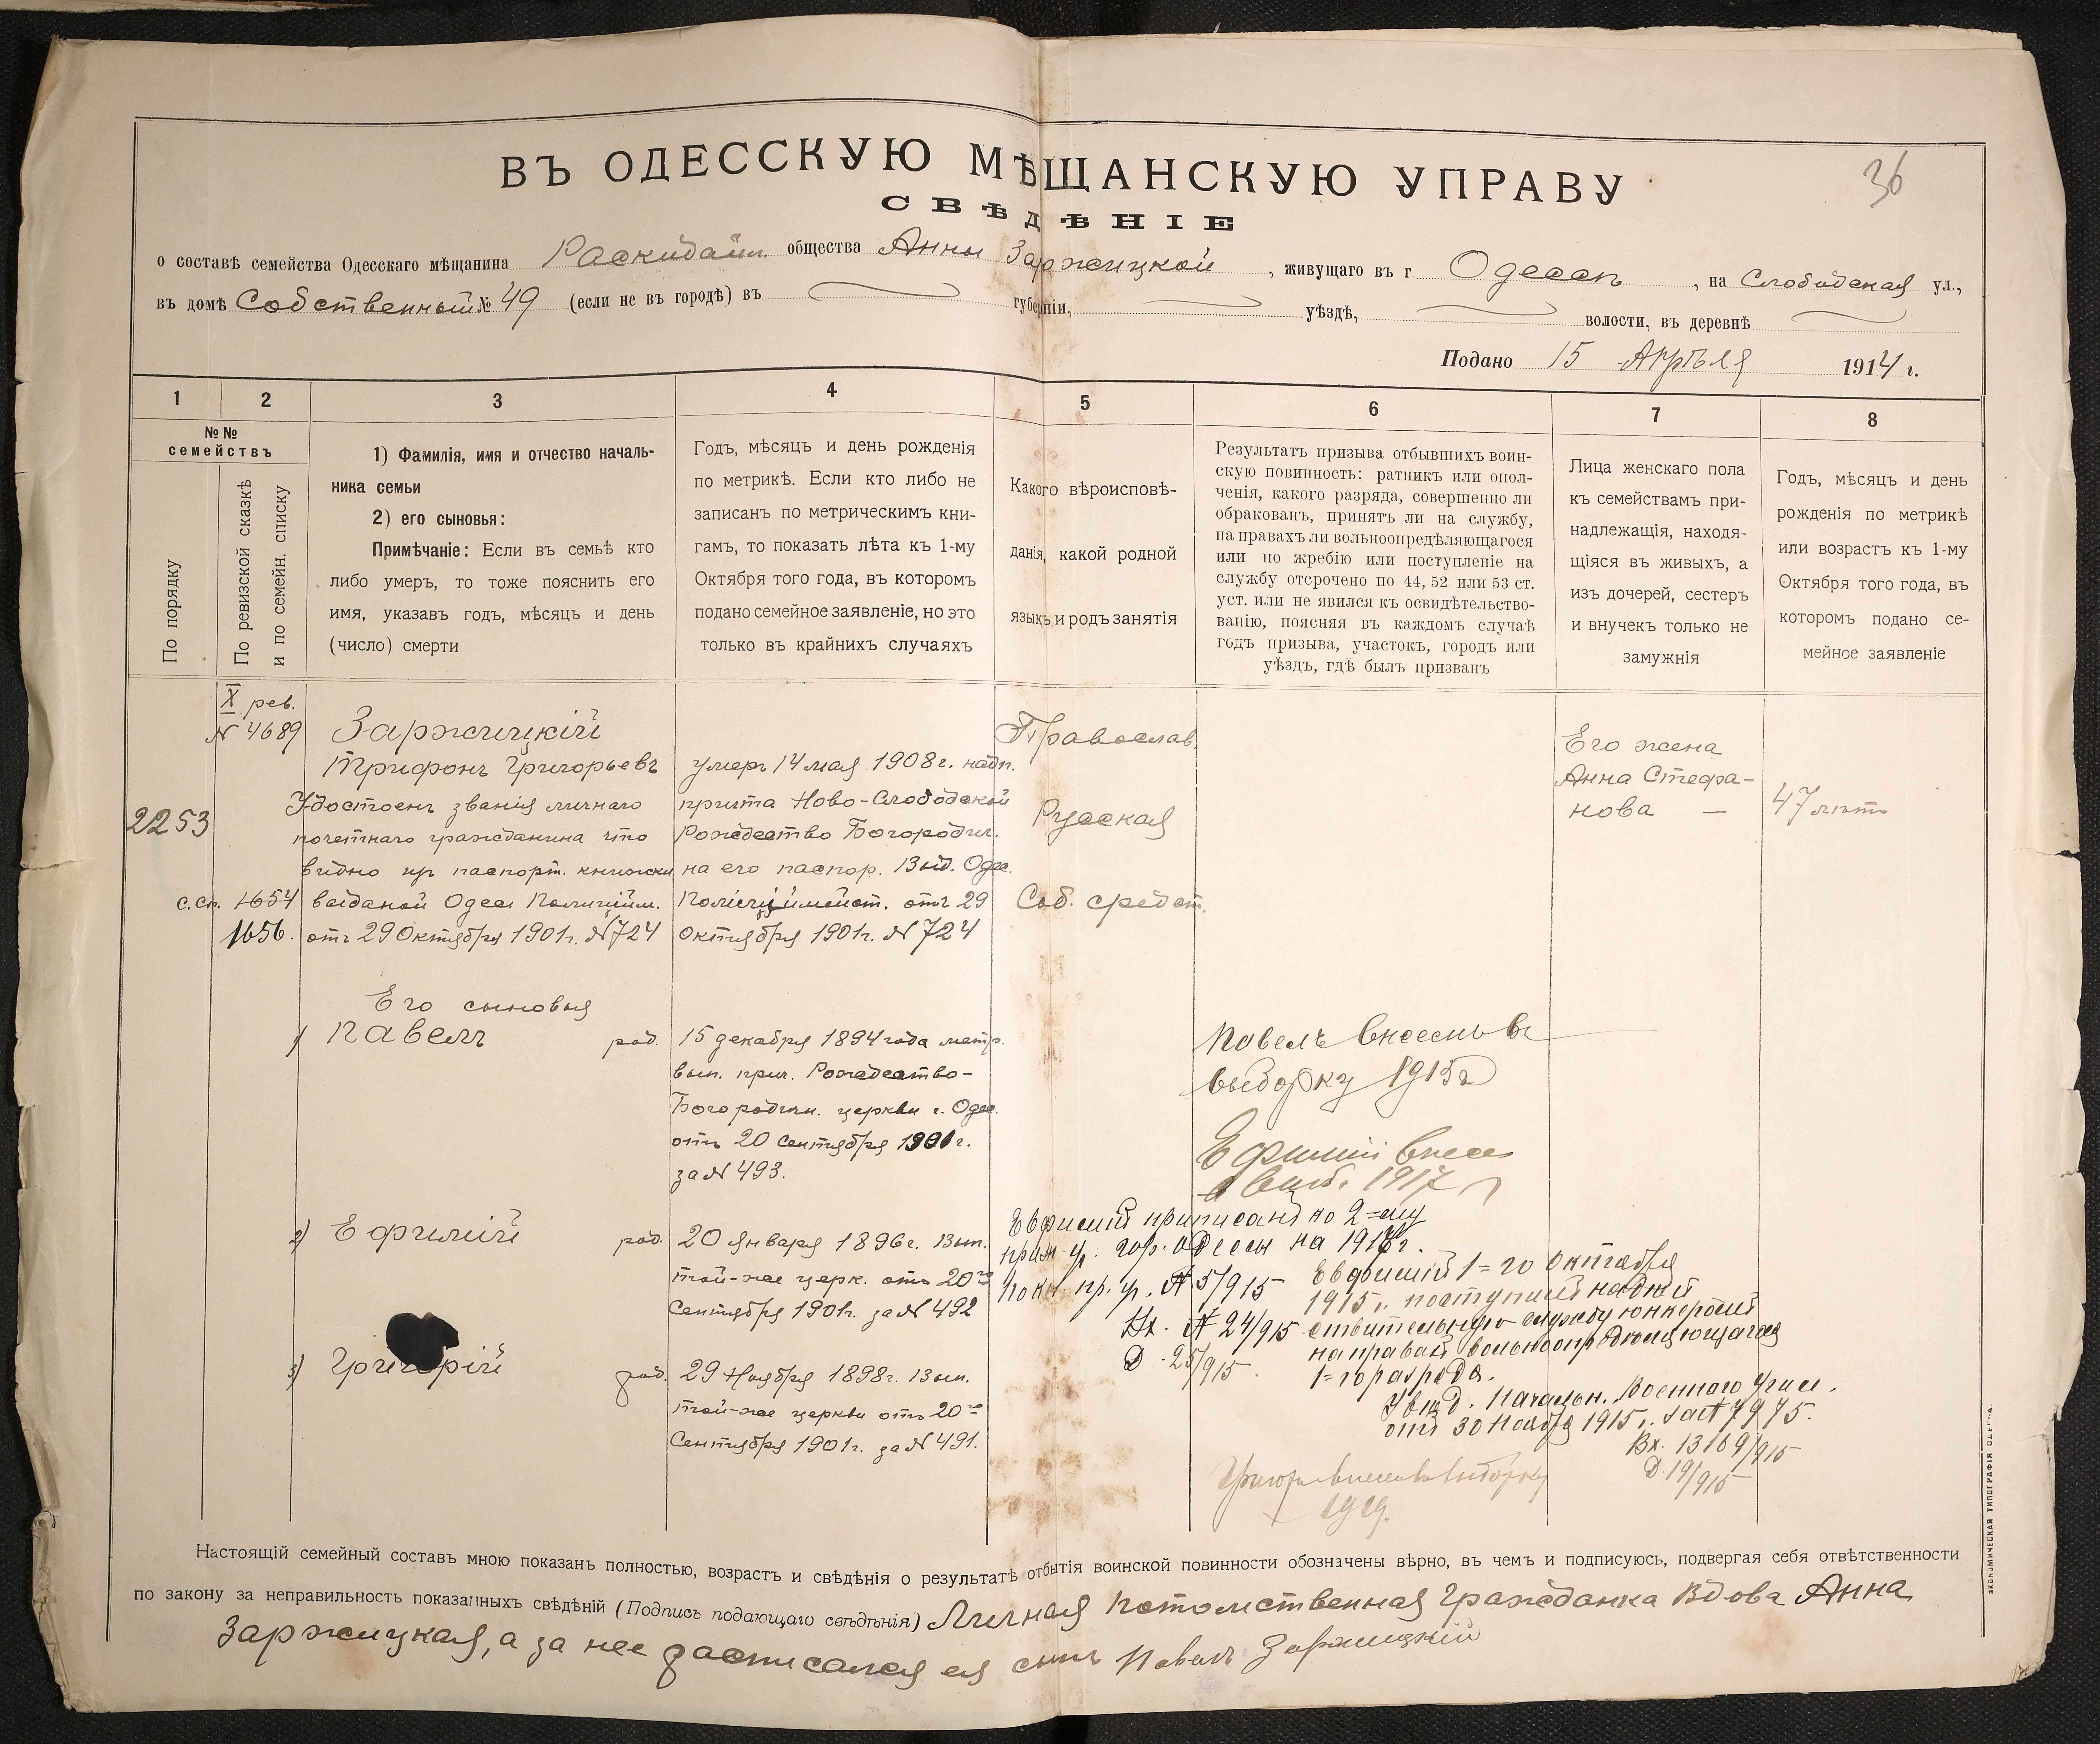 36
ВЪ ОДЕССКУЮ МѢЩАНСКУЮ УПРАВУ
СВѢДѢНІЕ
о составѣ семейства Одесскаго мѣщанина Раскидайл. общества Анны Заржицкой, живущаго въ г Одессѣ, на Слободская ул.,
въ домѣ Собственный № 49 (если не въ городѣ) въ губерніи, уѣздѣ, волости, въ деревнѣ
Подано 15 Апрѣля 1914 г.
1 2 3 4 5 6 7 8
№№
семействъ
По порядку
По ревизской сказкѣ
и по семейн. списку
1) Фамилія, имя и отчество началь-
ника семьи
2) его сыновья:
Примѣчаніе: Если въ семьѣ кто
либо умеръ, то тоже пояснить его
имя, указавъ годъ, мѣсяцъ и день
(число) смерти
Годъ, мѣсяцъ и день рожденія
по метрикѣ. Если кто либо не
записанъ по метрическимъ кни-
гамъ, то показать лѣта къ 1-му
Октября того года, въ которомъ
подано семейное заявленіе, но это
только въ крайнихъ случаяхъ
Какого вѣроисповѣ-
данія, какой родной
языкъ и родъ занятія
Результатъ призыва отбывшихъ воин-
скую повинность: ратникъ или опол-
ченія, какого разряда, совершенно ли
обракованъ, принятъ ли на службу,
на правахъ ли вольноопредѣляющагося
или по жребію или поступленіе на
службу отсрочено по 44, 52 или 53 ст.
уст. или не явился къ освидѣтельство-
ванію, поясняя въ каждомъ случаѣ
годъ призыва, участокъ, городъ или
уѣздъ, гдѣ былъ призванъ
Лица женскаго пола
къ семействамъ при-
надлежащія, находя-
щіяся въ живыхъ, а
изъ дочерей, сестеръ
и внучекъ только не
замужнія
Годъ, мѣсяцъ и день
рожденія по метрикѣ
или возрастъ къ 1-му
Октября того года, въ
которомъ подано се-
мейное заявленіе
2253
X рев.
№ 4689
с.сп. 1654
1656.
Заржицкій
Трифонъ Григорьевъ
Удостоенъ званія личнаго
почетнаго гражданина что
видно изъ паспорт. книжки
выданой Одес Полиційм.
отъ 29 Октября 1901г. №724
умеръ 14 мая 1908г. надп.
причта Ново-Слободской
Рождество Богородич.
на его паспор. Выд. Одес.
Поліціймейст. отъ 29
Октября 1901г. № 724
Православ.
Руская
Соб. средст.
Его жена
Анна Стефа-
нова —
47 лѣтъ
Его сыновья
1) Павелъ род.
15 декабря 1894 года метр.
вып. прич. Рождество-
Богородичн. церкви г. Одес.
отъ 20 Сентября 1901г.
за № 493.
Павелъ внесенъ въ
выборку 1915г
Ефимій внес
в выб. 1917 г
2) Ефимій род.
20 Января 1896г. Вып.
той-же церк. отъ 20го
Сентября 1901г. за № 492
Евфимій приписанъ ко 2=му
приз. у. гор. Одессы на 1917г.
по кн. пр. у. № 5/915
Вх. № 24/915
Д. 25/915.
Евфимій 1=го Октября
1915г. поступилъ на дѣй
ствительную службу юнкеромъ
на правахъ вольноопредѣляющагося
1=го разряда.
Увѣд. Начальн. Военного Учил.
отъ 30 Ноября 1915г. за № 7975.
Вх. 13169/915
Д. 19/915
3) Григорій род.
29 Ноября 1898г. Вып.
той-же церкви отъ 20го
Сентября 1901г. за № 491.
Григорій внесенъ въ выборку
1919.
Настоящій семейный составъ мною показанъ полностью, возрастъ и свѣдѣнія о результатѣ отбытія воинской повинности обозначены вѣрно, въ чемъ и подписуюсь, подвергая себя отвѣтственности
по закону за неправильность показанныхъ свѣдѣній (Подпись подающаго свѣдѣнія) Личная Потомственная Гражданка Вдова Анна
Заржицкая, а за нее росписался ея сынъ Павелъ Заржицкій
ЭКОНОМИЧЕСКАЯ ТИПОГРАФІЯ